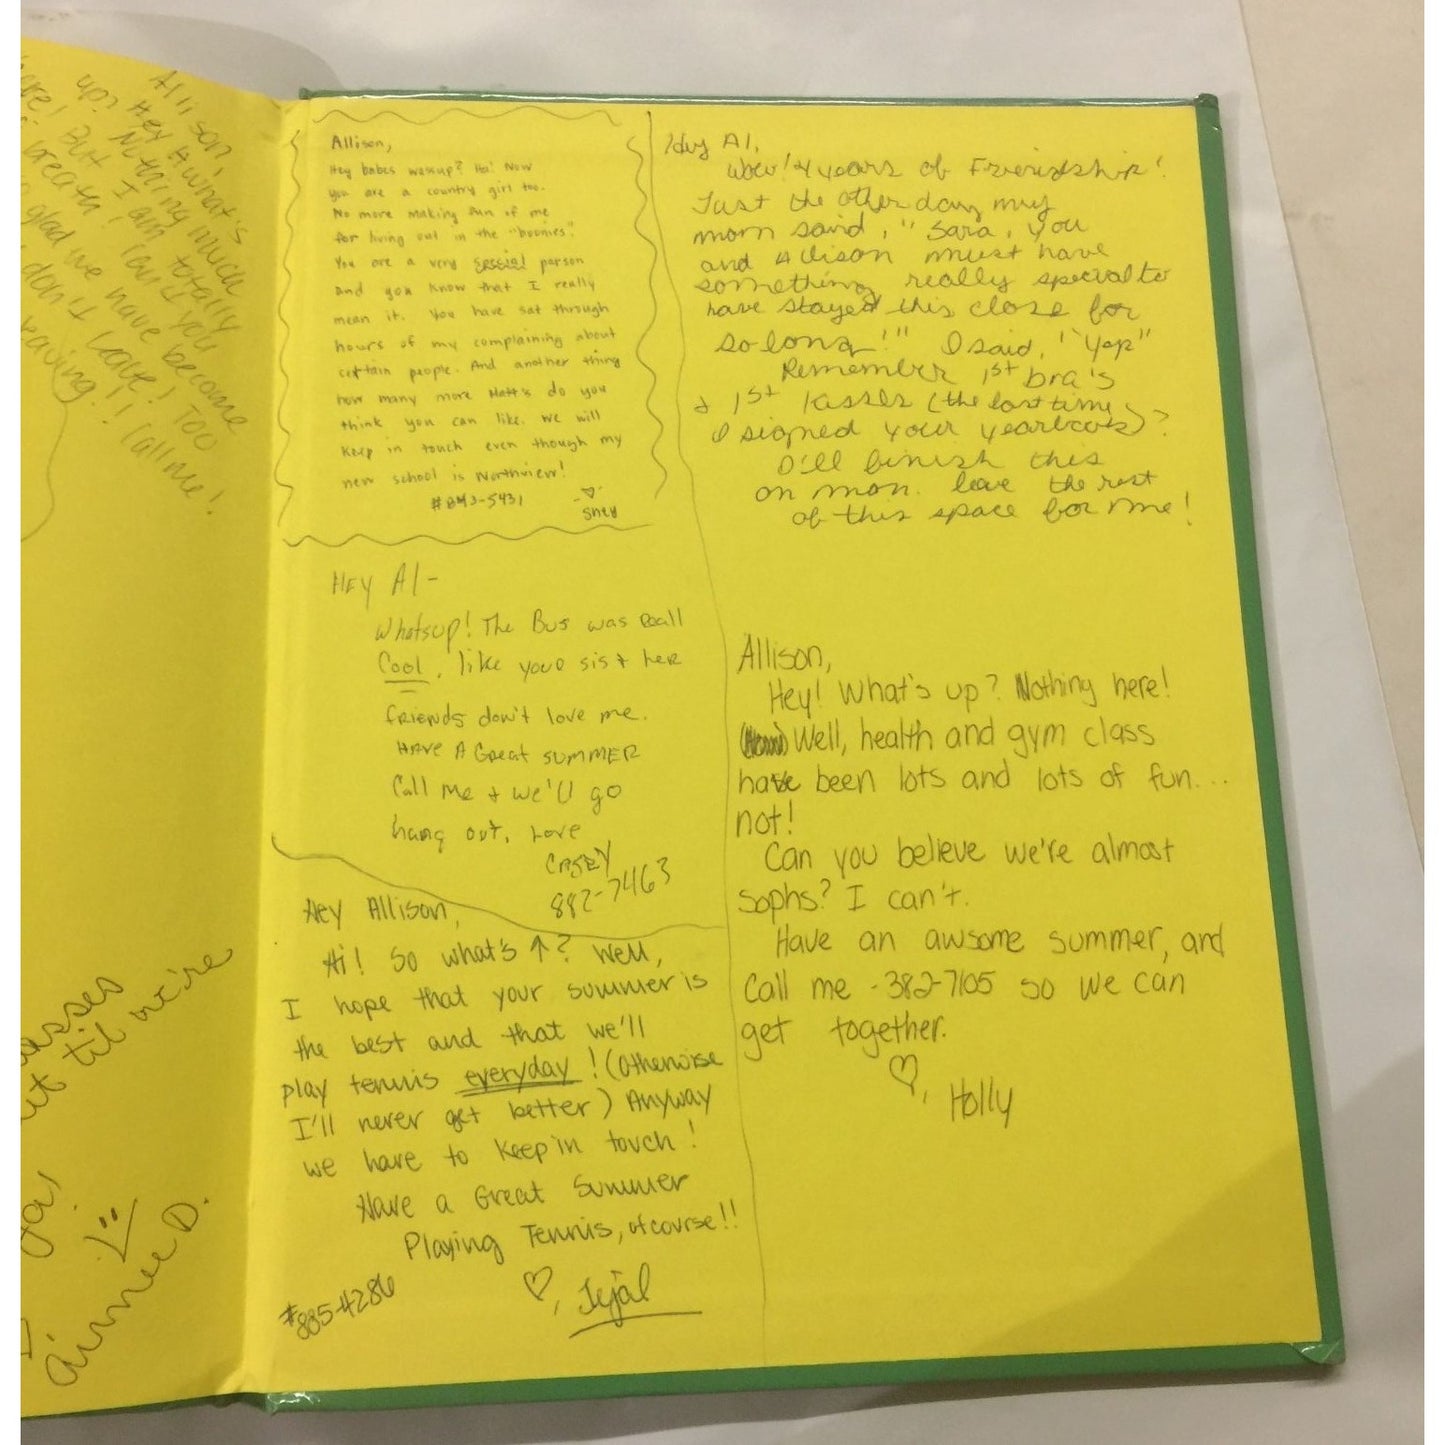 Allison
up? Hey A what's
here! Nothing much
But I am totally
breath! Luv I you
glad we have become
don't leave! Too
leaving!! Call me!
asses
til we're
ya!
Aimee D.
Allison,
Hey babes wassup? Ha! Now
you are a country girl too.
No more making fun of me
for living out in the "boonies".
You are a very special person
And you know that I really
mean it. You have sat through
hours of my complaining about
certain people. And another thing
how many more Matt's do you
think you can like. We will
Keep in touch even though my
new school is Northview!
#843-5431
HEY Al-
Whatsup! The Bus was Reall
Cool, like your sis + her
friends don't love me.
HAVE A Great SUMMER
Call Me + we'll go
hang out, Love
CASEY
882-7463
Hey Allison,
Hi! So what's ↑? Well,
I hope that your summer is
the best and that we'll
play tennis everyday! (Otherwise
I'll never get better) Anyway
we have to keep in touch!
Have a Great Summer
Playing Tennis, of course!!
♡, Tejal
#885-4286
Hey Al,
Wow! 4 years of Friendship!
Just the other day my
mom said, "Sara, you
and Allison must have
something really special to
have stayed this close for
so long!" I said, "Yep"
Remember 1st bra's
+ 1st kisses (the last time
I signed your yearbook)?
I'll finish this
on mon. leave the rest
of this space for me!
Allison,
Hey! What's up? Nothing here!
Well, health and gym class
have been lots and lots of fun...
not!
Can you believe we're almost
sophs? I can't.
Have an awsome summer, and
Call me - 382-7105 so we can
get together.
♡, Holly